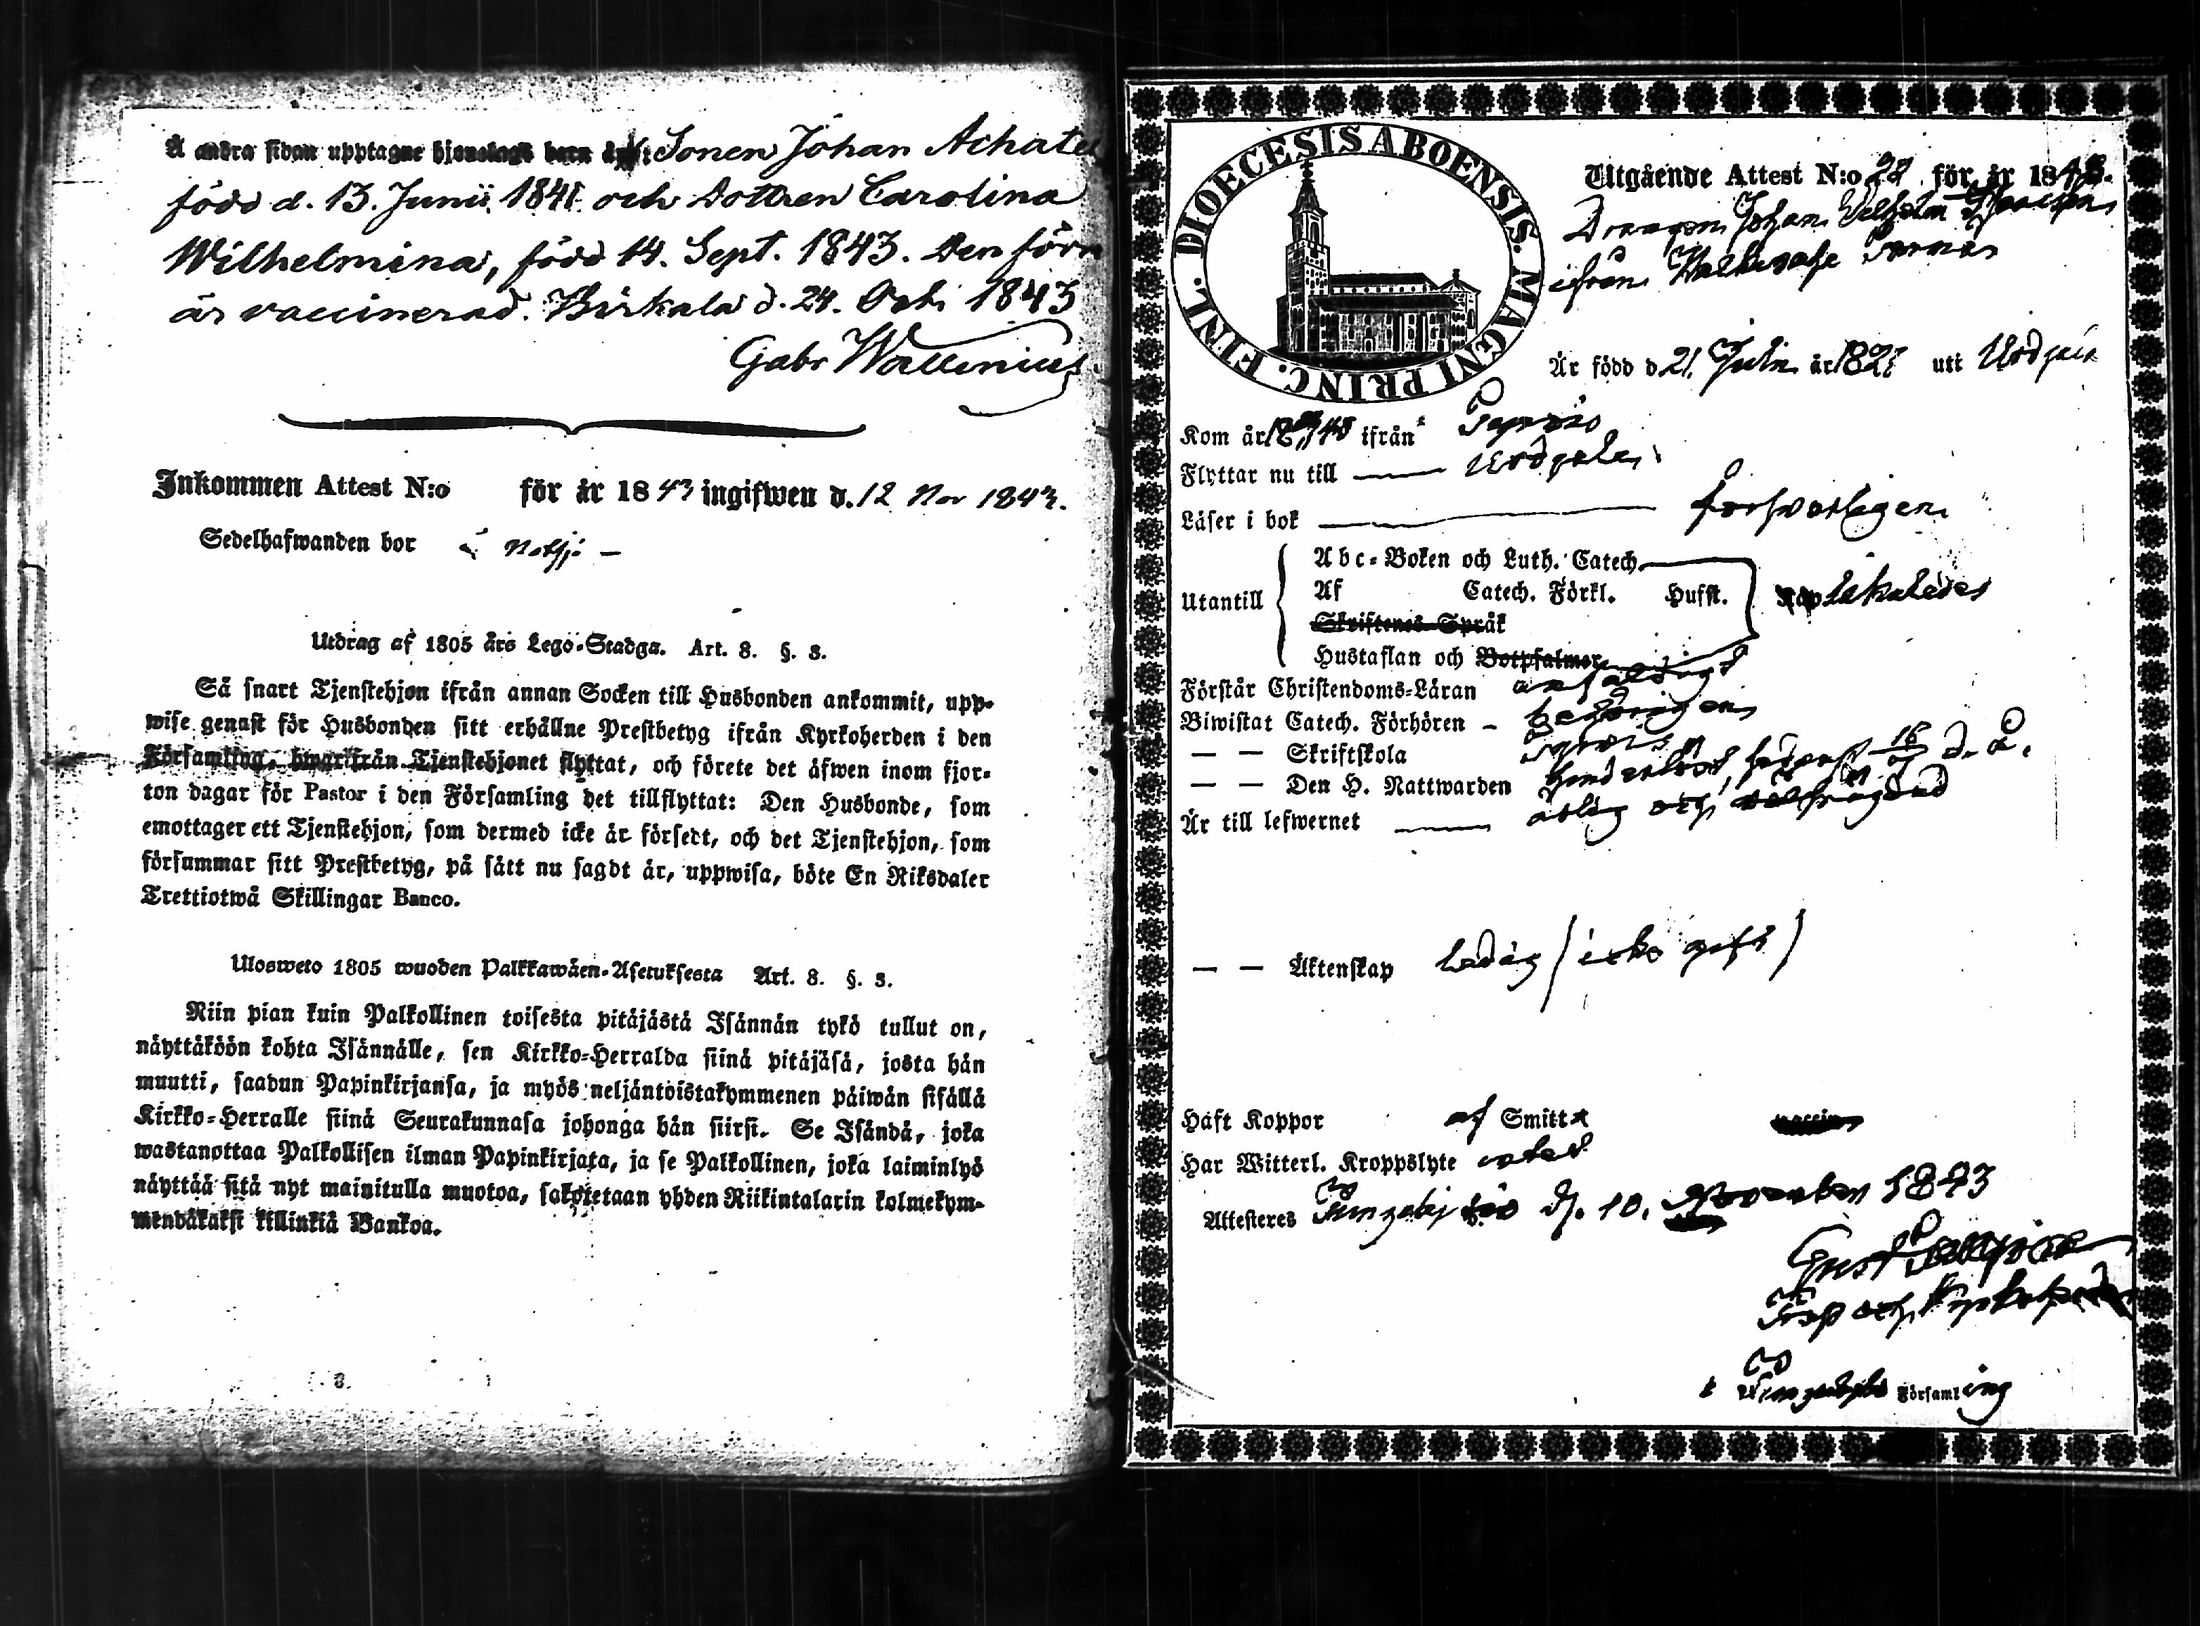 Å andra sidan upptagne hjonelags barn är: Sonen Johan Achates
född d. 13. Junii 1841 och Dottren Carolina
Wilhelmina, född 14. Sept. 1843. Den förra
är vaccinerad. Birkala d. 24. Oct. 1843
Gabr Wallenius
Inkommen Attest N:o för år 1843 ingifwen d. 12 Nov 1843.
Sedelhafwanden bor i
Utdrag af 1805 års Lego-Stadga. Art. 8. §. 3.
Så snart Tjenstehjon ifrån annan Socken till Husbonden ankommit, upp-
wise genast för Husbonden sitt erhållne Prestbetyg ifrån Kyrkoherden i den
Församling, hwarifrån Tjenstehjonet flyttat, och förete det äfwen inom fjor-
ton dagar för Pastor i den Församling det tillflyttat: Den Husbonde, som
emottager ett Tjenstehjon, som dermed icke är försedt, och det Tjenstehjon, som
försummar sitt Prestbetyg, på sätt nu sagdt är, uppwisa, böte En Riksdaler
Trettiotwå Skillingar Banco.
Ulosweto 1805 wuoden Palkkawäen-Asetuksesta Art. 8. §. 3.
Niin pian kuin Palkollinen toisesta pitäjästä Isännän tykö tullut on,
näyttäköön kohta Isännälle, sen Kirkko-Herralda siinä pitäjäsä, josta hän
muutti, saadun Papinkirjansa, ja myös neljäntoistakymmenen päiwän sisällä
Kirkko-Herralle siinä Seurakunnasa johonga hän siirsi. Se Isändä, joka
wastanottaa Palkollisen ilman Papinkirjata, ja se Palkollinen, joka laiminlyö
näyttää sitä nyt mainitulla muotoa, sakotetaan yhden Riikintalarin kolmekym-
mendäkaksi killinkiä Bankoa.
DIOECESIS ABOENSIS. MAGNI PRINC. FINL.
Utgående Attest N:o 28 för år 1843.
Dragon Johan Wilhelm
ifrån
Är född d 21. Julii år 182 uti Urdiala
Kom år ifrån
Flyttar nu till Urdiala
Läser i bok försvarligen
Utantill
Abc-Boken och Luth. Catech.
Af Catech. Förkl. Husst. likaledes
Skriftenes Språk
Hustaflan och Botpsalmer
Förstår Christendoms-Läran enfaldigt
Biwistat Catech. Förhören - behörigen
— — Skriftskola
— — Den H. Nattwarden sednast 16 d. å.
Är till lefwernet ärlig och
— — Äktenskap ledig (icke gift)
Haft Koppor af Smitta vaccin
Har Witterl. Kroppslyte intet
Attesteres d. 10. November 1843
Gust
Prop och Kyrkoherde
i Församling